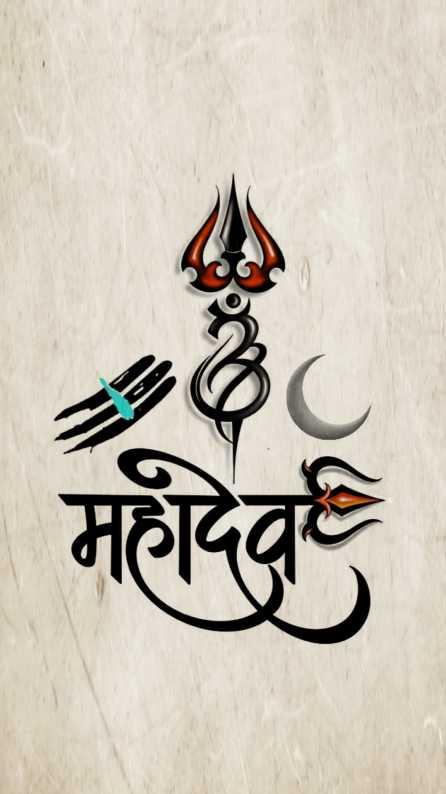 ॐ
महादेव